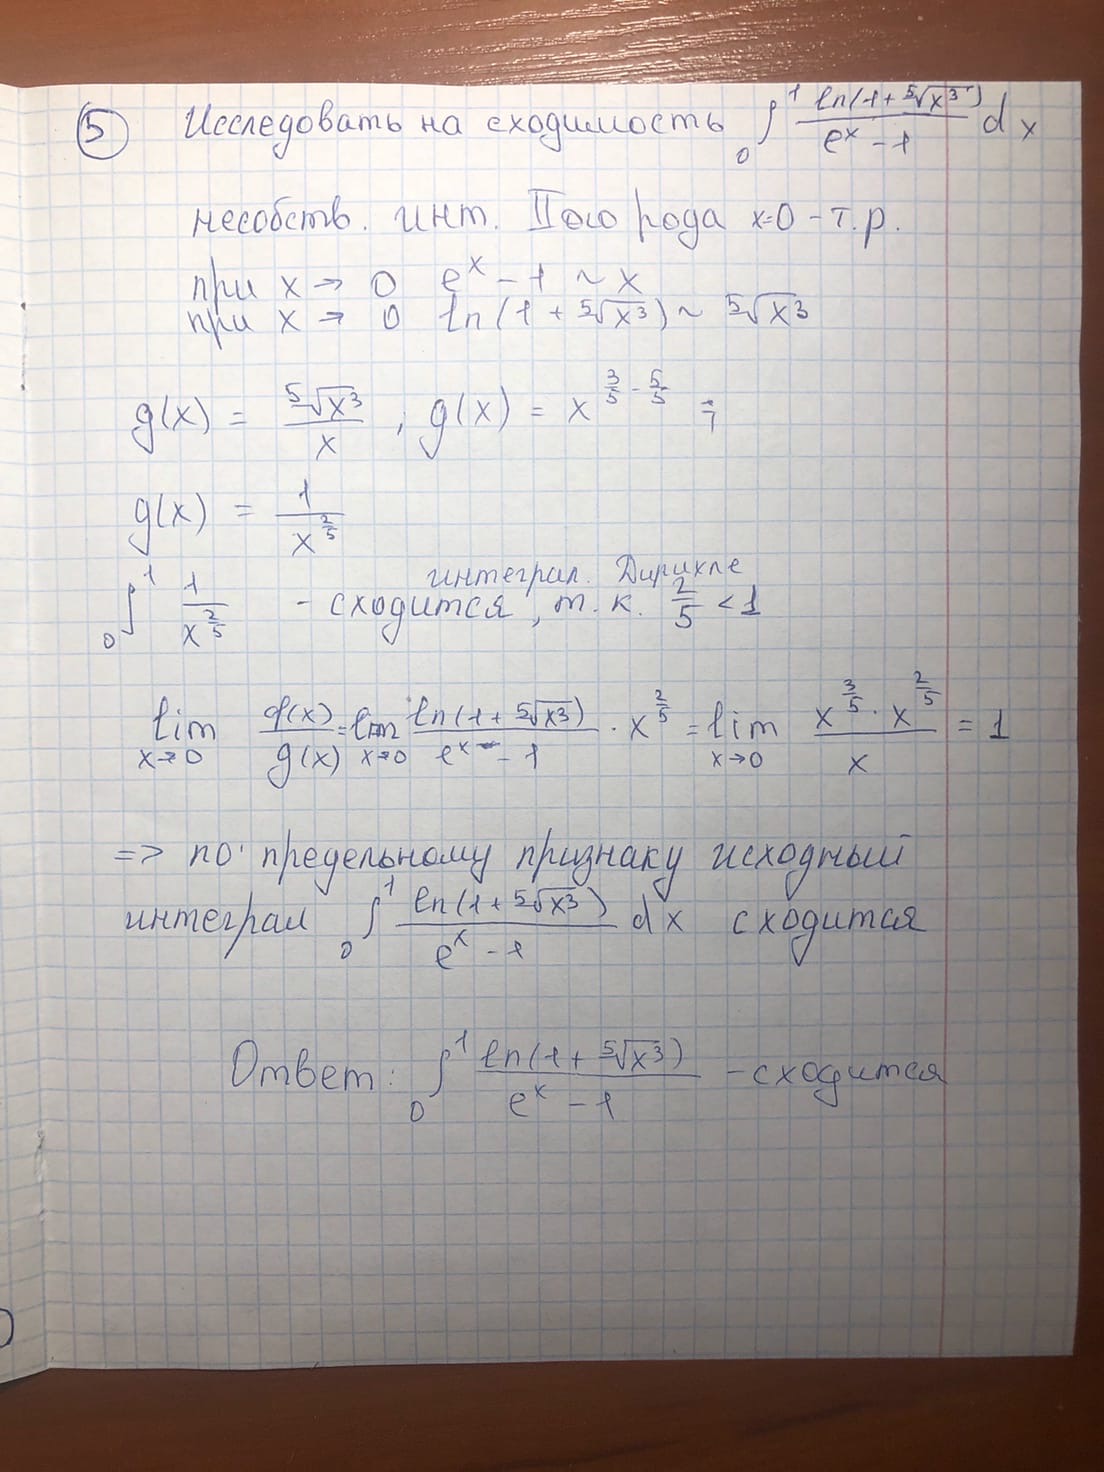 5 Исследовать на сходимость ∫₀¹ ln(1+⁵√x³)/(eˣ-1) dx
несобств. инт. II ого рода x=0 - т.р.
при x → 0 eˣ - 1 ~ x
при x → 0 ln(1 + ⁵√x³) ~ ⁵√x³
g(x) = ⁵√x³/x , g(x) = x^(3/5 - 5/5) ;
g(x) = 1/x^(2/5)
интеграл. Дирихле
∫₀¹ 1/x^(2/5) - сходится, т.к. 2/5 < 1
lim x→0 f(x)/g(x) = lim x→0 ln(1+⁵√x³)/(eˣ - 1) · x^(2/5) = lim x→0 (x^(3/5) · x^(2/5))/x = 1
=> по предельному признаку исходный
интеграл ∫₀¹ ln(1+⁵√x³)/(eˣ-1) dx сходится
Ответ: ∫₀¹ ln(1+⁵√x³)/(eˣ-1) - сходится